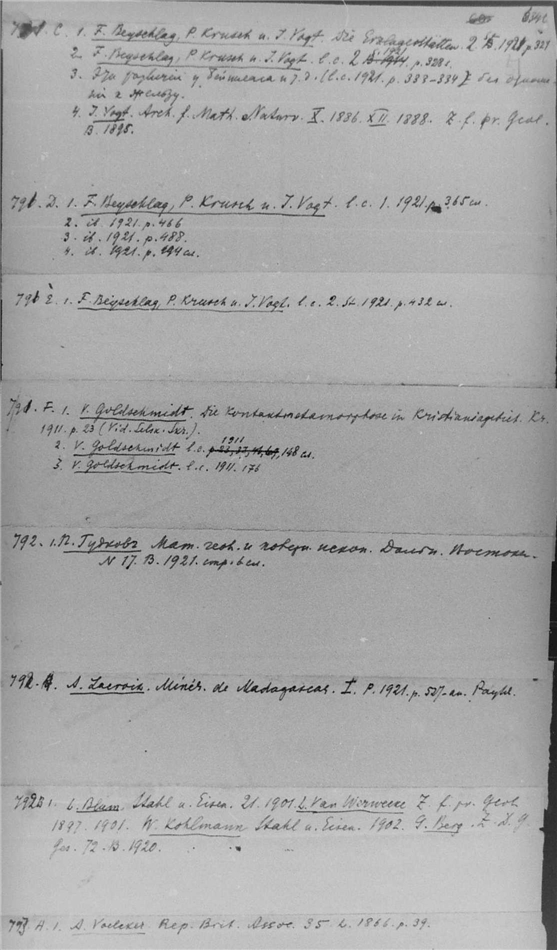 791. C. 1. F. Beyschlag, P. Krusch u. J. Vogt. Die Erzlagerstätten. 2 B. 1921 p. 327
2. F. Beyschlag, P. Krusch u. J. Vogt. l. c. 2 1921 p. 328.
3. у и т. д. (l. c. 1921. p. 333-334) без
к железу.
4. J. Vogt. Arch. f. Math. Naturv. X. 1886. XII. 1888. Z. f. pr. Geol.
B. 1895.
791. D. 1. F. Beyschlag, P. Krusch u. J. Vogt. l. c. 1. 1921. p. 365 сл.
2. ib. 1921. p. 466
3. ib. 1921. p. 488.
4. ib. 1921. p. 494 сл.
791 E. 1. F. Beyschlag, P. Krusch u. J. Vogt. l. c. 2. St. 1921. p. 432 сл.
791. F. 1. V. Goldschmidt. Die Kontaktmetamorphose in Kristianiagebiet. Kr.
1911. p. 23 (Vid. Selsk. Skr.).
2. V. Goldschmidt l. c. 1911 p. 23, 37, 148 сл.
3. V. Goldschmidt. l. c. 1911. 176
792. 1. П. Гудковъ Мат. геол. и полезн. ископ. Дальн. Востока.
N 17. В. 1921. стр. 6 сл.
792. A. Lacroix. Minér. de Madagascar. I. P. 1921. p. 527
792 1. L. Blum, Stahl u. Eisen. 21. 1901. L. Van Werwecke Z. f. pr. Geol.
1897. 1901. W. Kohlmann, Stahl u. Eisen. 1902. G. Berg. Z. D. g.
Ges. 72. B. 1920.
793 A. 1. A. Voelcker. Rep. Brit. Assoc. 35 L. 1866. p. 39.